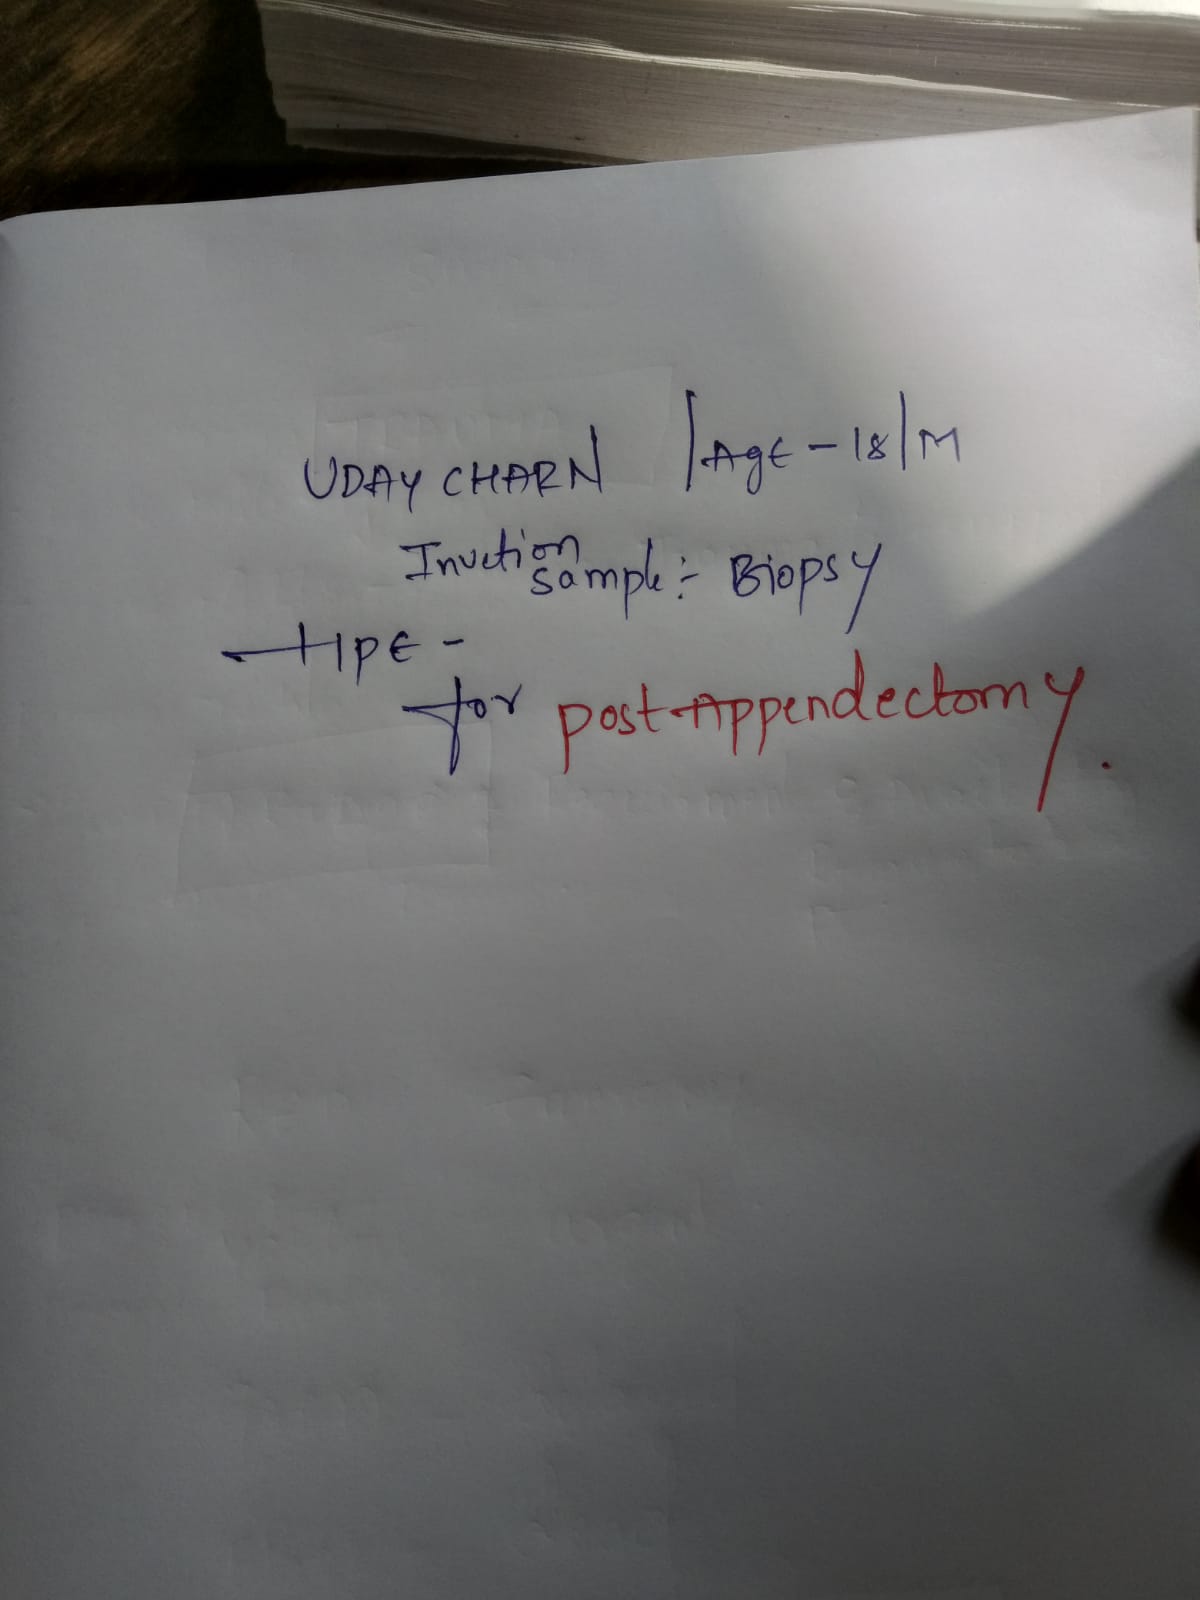 UDAY CHARN / Age - 18/M
Invetion Sample :- Biopsy
HPE -
for post-Appendectomy.